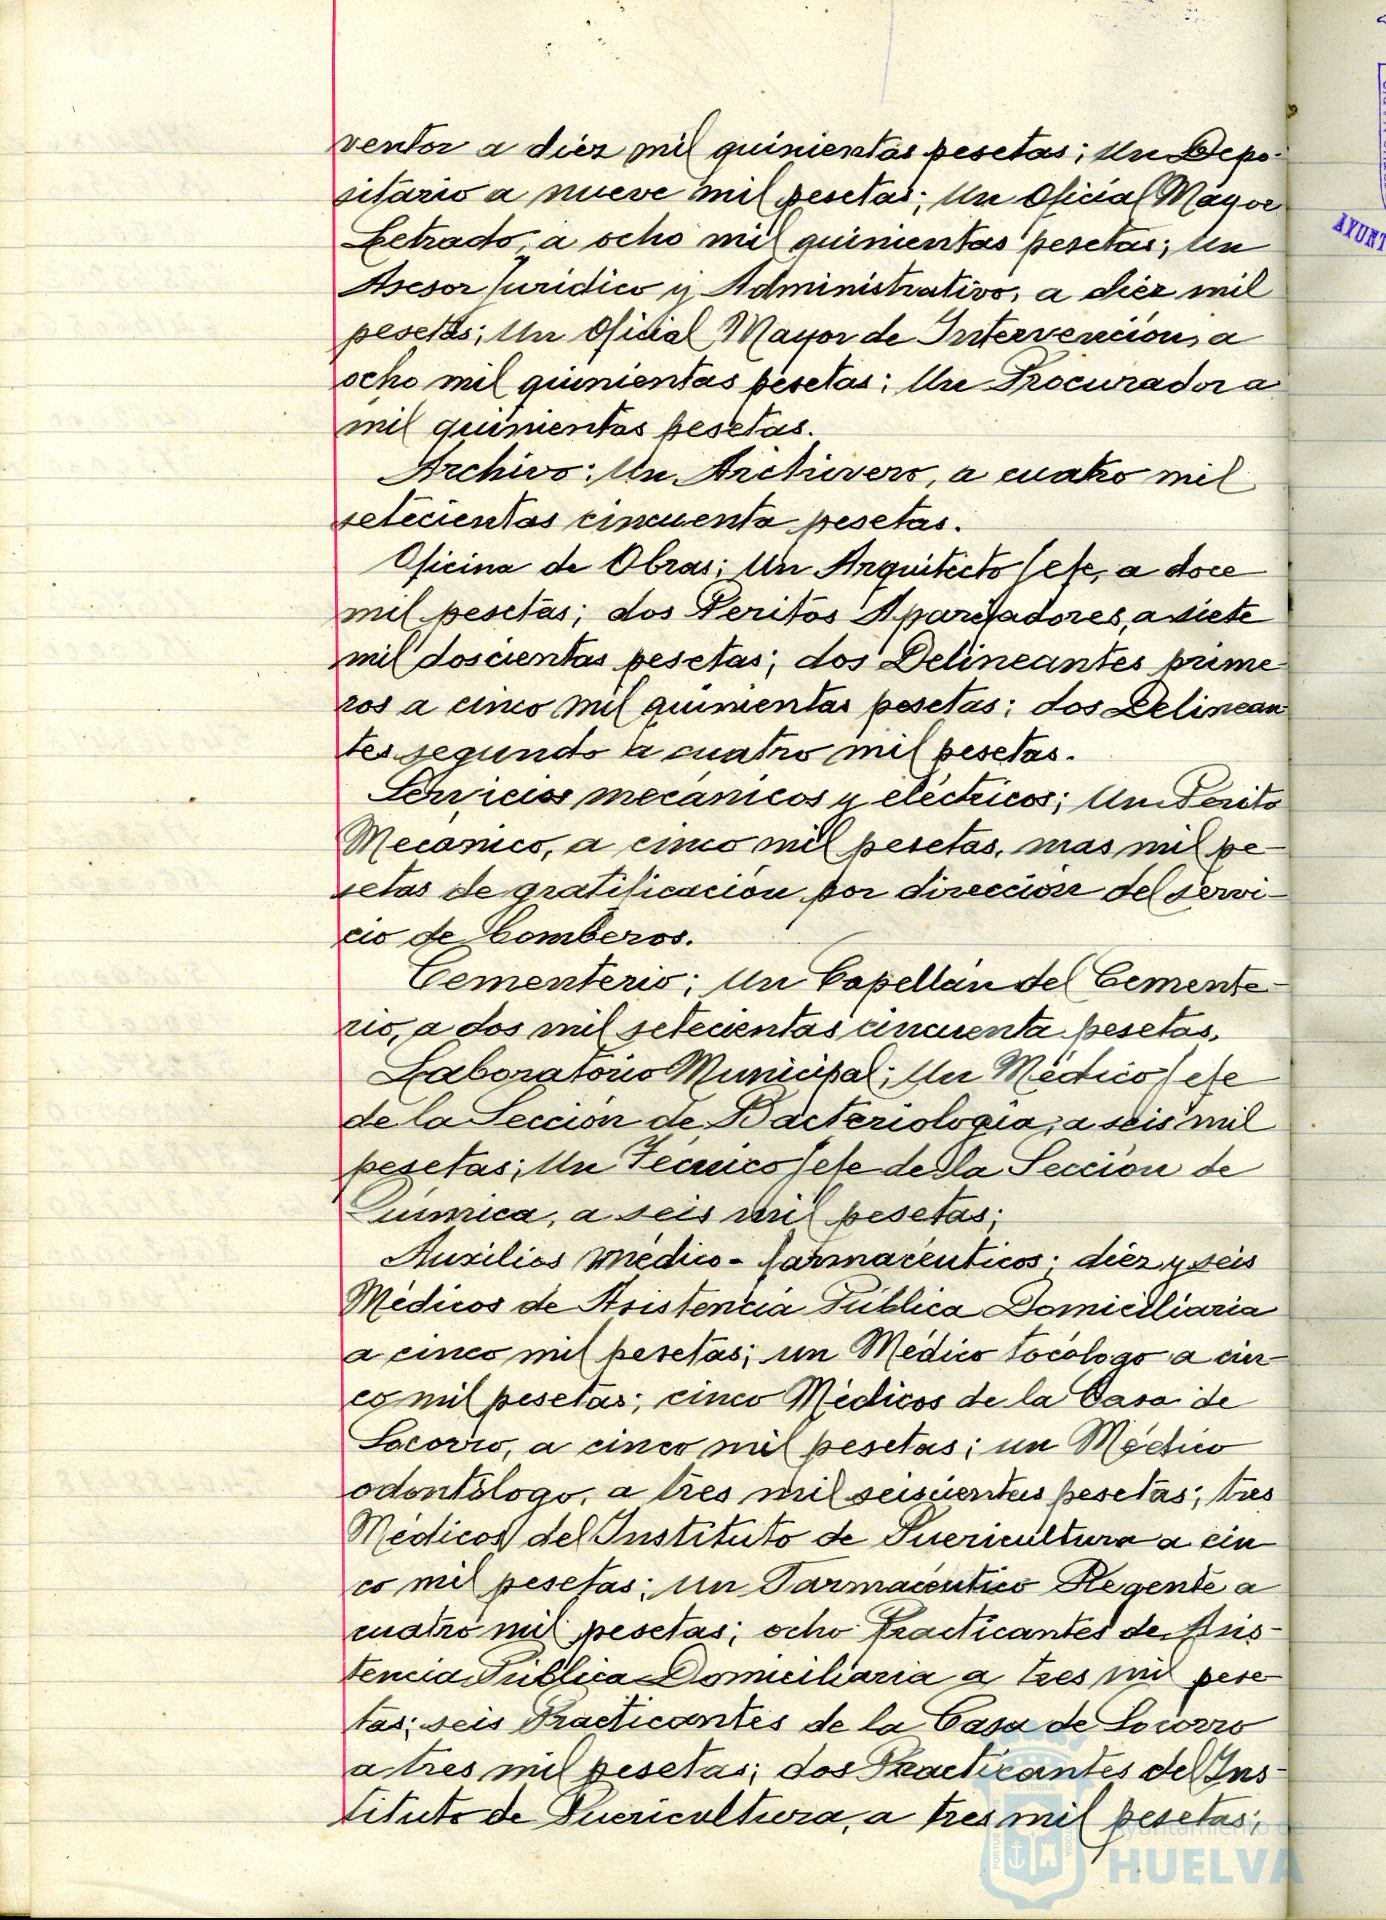 ventor a diéz mil quinientas pesetas; Un Depo-
sitario a nueve mil pesetas; Un Oficial Mayor
Letrado, a ocho mil quinientas pesetas; Un
Asesor Juridico y Administrativo, a diéz mil
pesetas; Un Oficial Mayor de Intervención, a
ocho mil quinientas pesetas; Un Procurador a
mil quinientas pesetas.
Archivo: Un Archivero, a cuatro mil
setecientas cincuenta pesetas.
Oficina de Obras; Un Arquitecto Jefe, a doce
mil pesetas; dos Peritos Aparejadores, a siete
mil doscientas pesetas; dos Delineantes prime-
ros a cinco mil quinientas pesetas; dos Delinean-
tes segundo a cuatro mil pesetas.
Servicios mecánicos y eléctricos; Un Perito
Mecánico, a cinco mil pesetas, mas mil pe-
setas de gratificación por dirección del servi-
cio de bomberos.
Cementerio; Un Capellán del Cemente-
rio, a dos mil setecientas cincuenta pesetas.
Laboratorio Municipal; Un Médico Jefe
de la Sección de Bacteriología, a seis mil
pesetas; Un Técnico Jefe de la Sección de
Química, a seis mil pesetas;
Auxilios médico-farmacéuticos; diéz y seis
Médicos de Asistencia Pública Domiciliaria
a cinco mil pesetas; un Médico tocólogo a cin-
co mil pesetas; cinco Médicos de la Casa de
Socorro, a cinco mil pesetas; un Médico
odontólogo, a tres mil seiscientas pesetas; tres
Médicos del Instituto de Puericultura a cin
co mil pesetas; un Farmacéutico Regente a
cuatro mil pesetas; ocho Practicantes de Asis-
tencia Pública Domiciliaria a tres mil pese-
tas; seis Practicantes de la Casa de Socorro
a tres mil pesetas; dos Practicantes del Ins-
tituto de Puericultura, a tres mil pesetas;
AYUNT
Ayuntamiento de
HUELVA